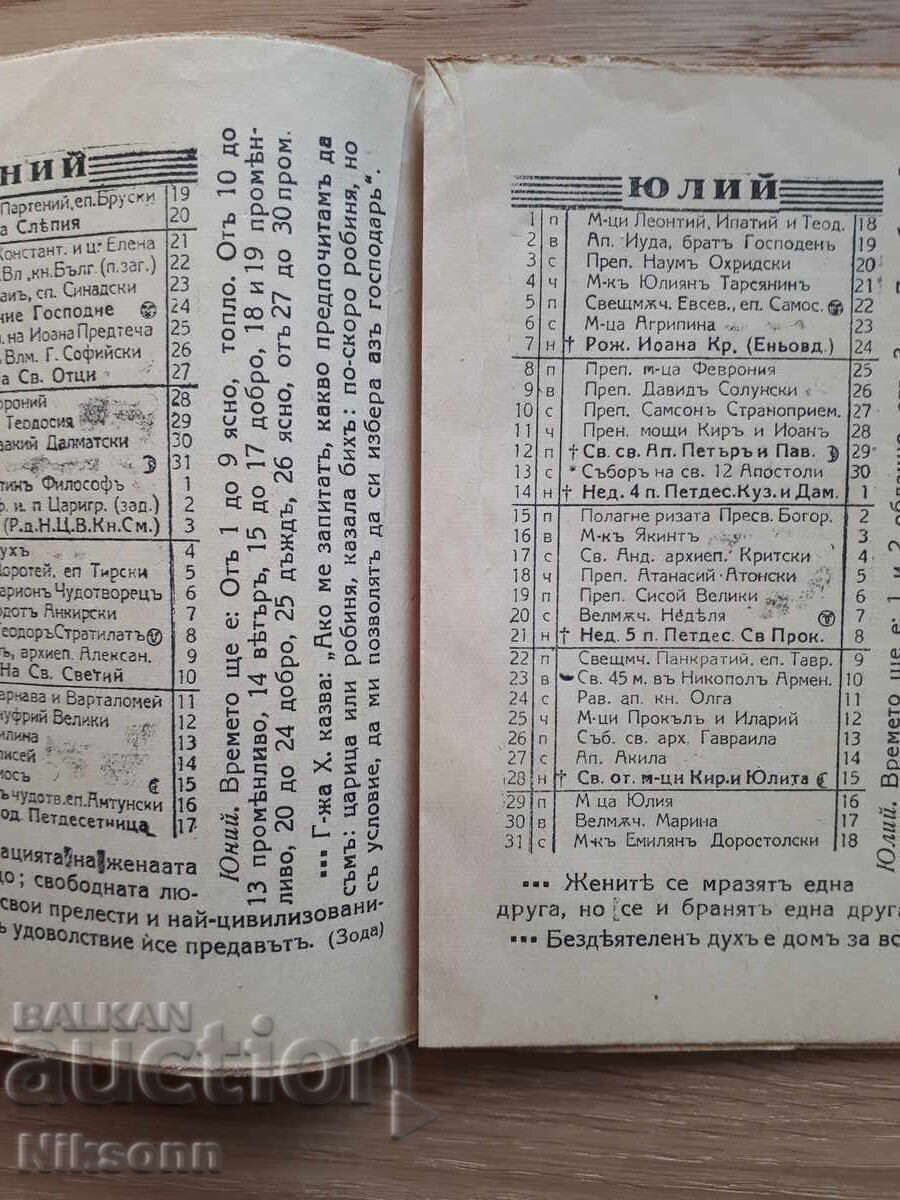 НИЙ
Партений, еп. Бруски 19
а Слѣпия 20
Констант. и ц. Елена 21
Вл., кн. Бълг. (п. заг.) 22
сп. Синадски 23
ние Господне 24
на Иоана Предтеча 25
Влм. Г. Софийски 26
а Св. Отци 27
роний 28
Теодосия 29
Далматски 30
31
тинъ Философъ 1
ф. и. п Цариг. (зад.) 2
(Р.д.Н.Ц.В.Кн.См.) 3
ухъ 4
Доротей, еп Тирски 5
арионъ Чудотворецъ 6
одотъ Анкирски 7
еодоръ Стратилатъ 8
ъ, архиеп. Алексан. 9
На Св. Светий 10
арнава и Варталомей 11
нуфрий Велики 12
илина 13
лисей 14
мосъ 15
ъ чудотв. еп. Амтунски 16
од. Петдесетница 17
ацията на женаата
до; свободната лю-
свои прелести и най-цивилизовани-
ъ удоволствие ѝсе предавътъ. (Зода)
Юний. Времето ще е: Отъ 1 до 9 ясно, топло. Отъ 10 до
13 промѣнливо, 14 вѣтъръ, 15 до 17 добро, 18 и 19 промѣн-
ливо, 20 до 24 добро, 25 дъждъ, 26 ясно, отъ 27 до 30 пром.
▪▪▪ Г-жа Х. казва: „Ако ме запитатъ, какво предпочитамъ да
съмъ: царица или робиня, казала бихъ: по-скоро робиня, но
съ условие, да ми позволятъ да си избера азъ господарь“.
ЮЛИЙ
1 п М-ци Леонтий, Ипатий и Теод. 18
2 в Ап. Иуда, братъ Господень 19
3 с Преп. Наумъ Охридски 20
4 ч М-къ Юлиянъ Тарсянинъ 21
5 п Свещмѫч. Евсев., еп. Самос. 22
6 с М-ца Агрипина 23
7 н † Рож. Иоана Кр. (Еньовд.) 24
8 п Преп. м-ца Феврония 25
9 в Преп. Давидъ Солунски 26
10 с Преп. Самсонъ Страноприем. 27
11 ч Прен. мощи Киръ и Иоанъ 28
12 п † Св. св. Ап. Петъръ и Пав. 29
13 с * Съборъ на св. 12 Апостоли 30
14 н † Нед. 4 п. Петдес. Куз. и Дам. 1
15 п Полагне ризата Пресв. Богор. 2
16 в М-къ Якинтъ 3
17 с Св. Анд. архиеп. Критски 4
18 ч Преп. Атанасий Атонски 5
19 п Преп. Сисой Велики 6
20 с Велмѫч. Недѣля 7
21 н † Нед. 5 п. Петдес. Св Прок. 8
22 п Свещмч. Панкратий, еп. Тавр. 9
23 в Св. 45 м. въ Никополъ Армен. 10
24 с Рав. ап. кн. Олга 11
25 ч М-ци Прокълъ и Иларий 12
26 п Съб. св. арх. Гавраила 13
27 с Ап. Акила 14
28 н † Св. от. м-ци Кир. и Юлита 15
29 п М ца Юлия 16
30 в Велмѫч. Марина 17
31 с М-къ Емилянъ Доростолски 18
▪▪▪ Женитѣ се мразятъ една
друга, но се и бранятъ една друга
▪▪▪ Бездѣятеленъ духъ е домъ за вс
Юлий. Времето ще е: 1 и 2
BALKAN
auction
Niksonn